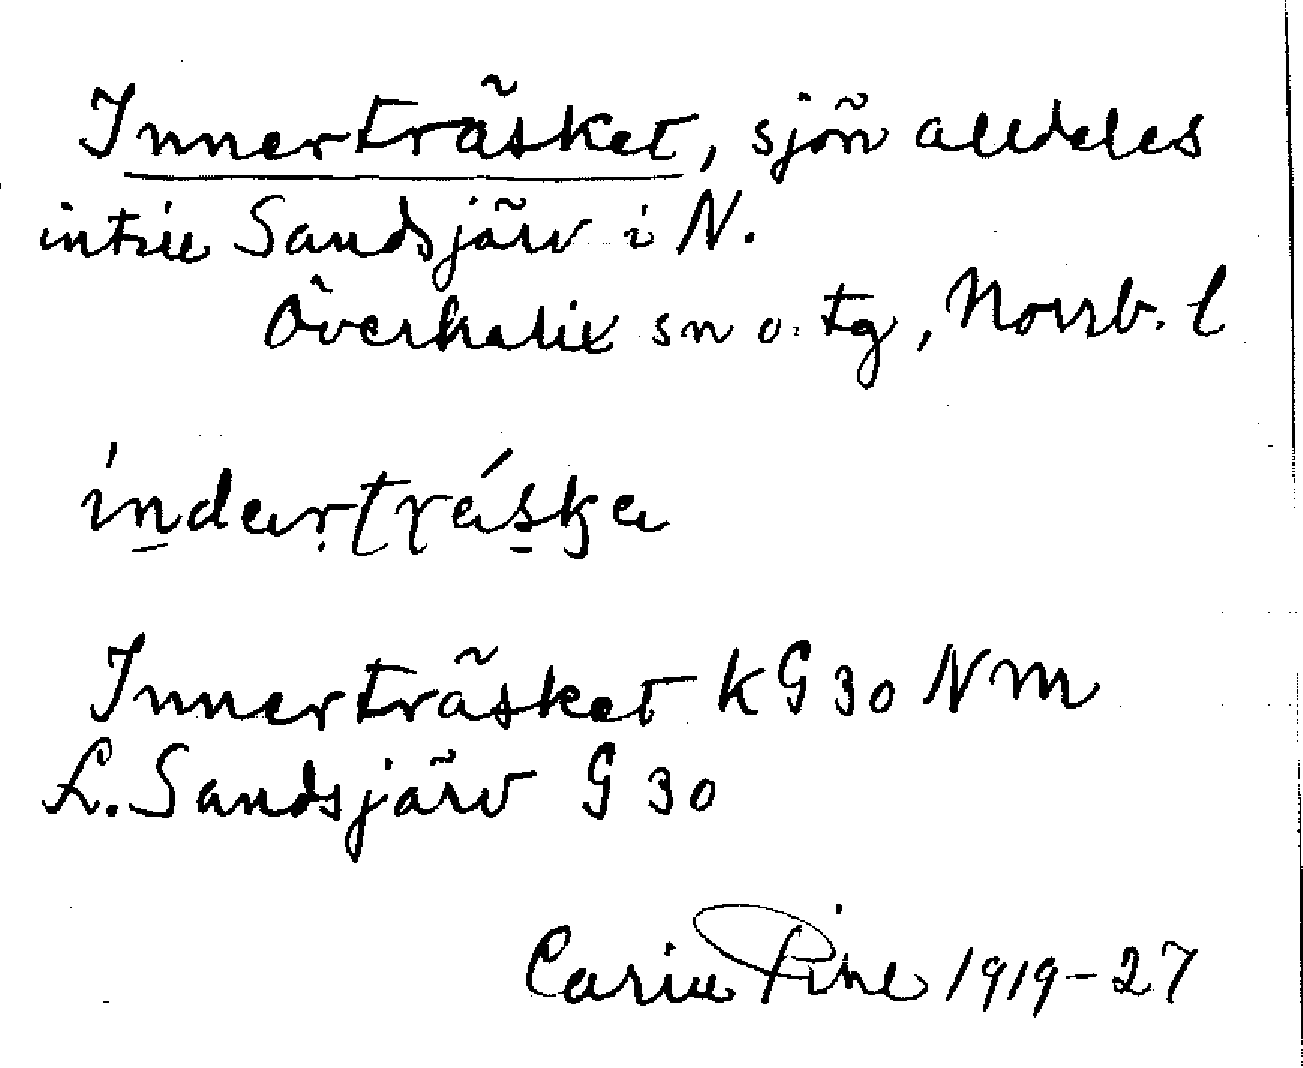 Innerträsket, sjön alldeles
intill Sandsjärv i N.
Överkalix sn o. tg, Norrb. l
indertráska
Innerträsket KG 30 NM
L. Sandsjärv G 30
Carin Pihl 1919-27